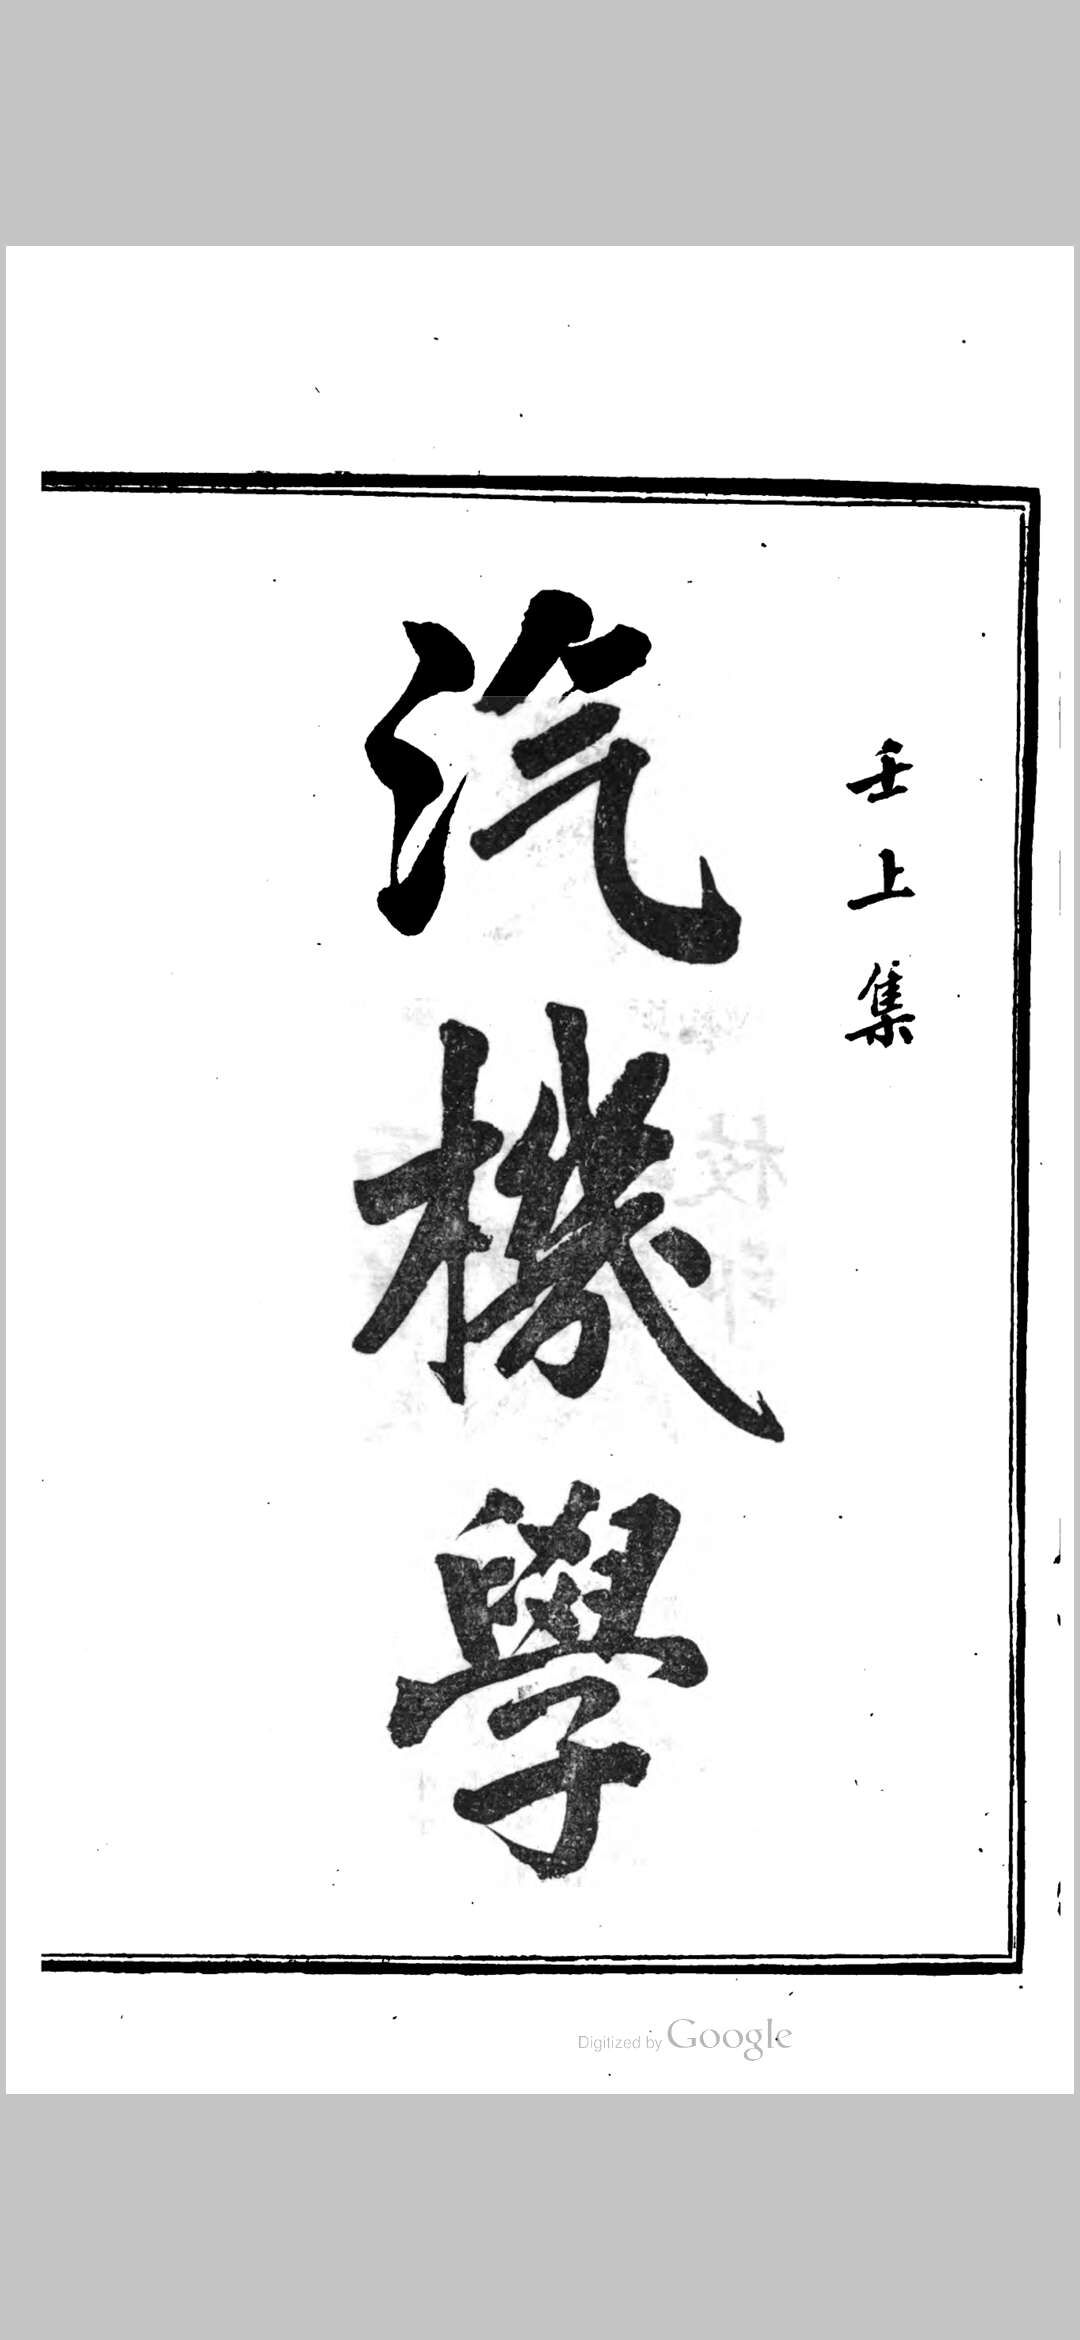 壬上集
汽機學
Digitized by Google